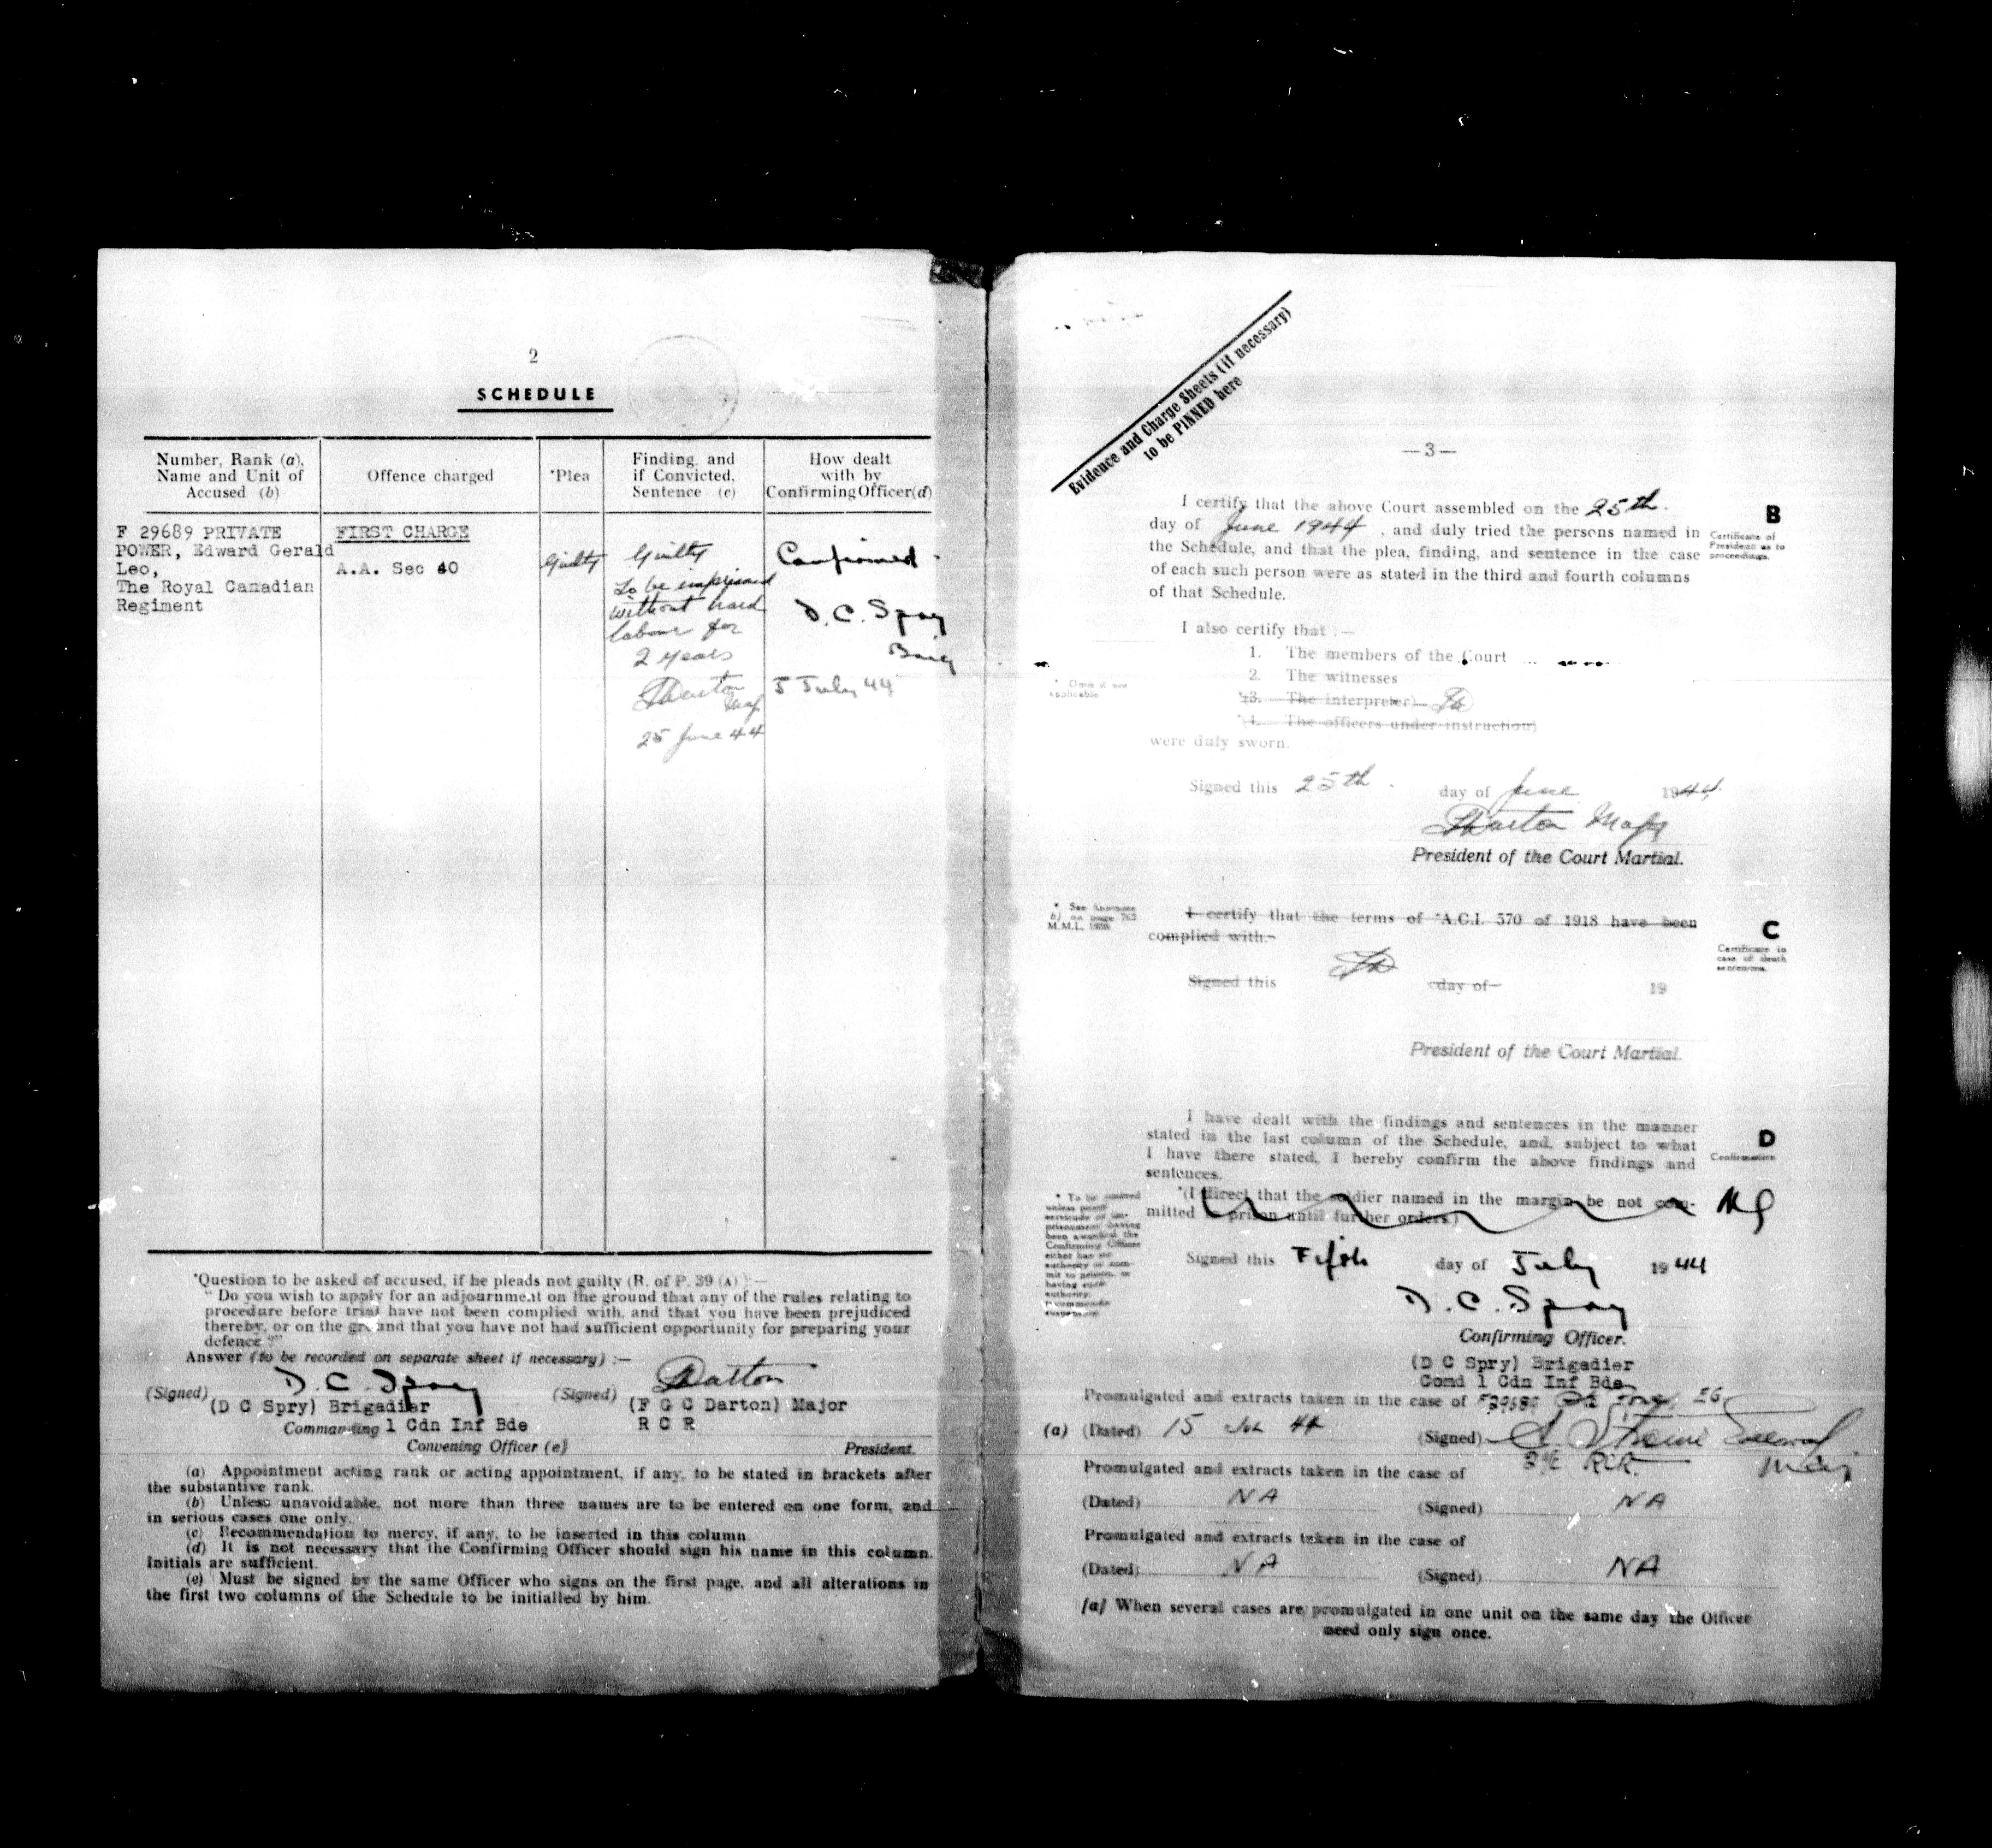 2
SCHEDULE
Number, Rank (a),
Name and Unit of
Accused (b)
Offence charged
*Plea
Finding, and
if Convicted,
Sentence (c)
How dealt
with by
Confirming Officer (d)
F 29689 PRIVATE
POWER, Edward Gerald
Leo,
The Royal Canadian
Regiment
FIRST CHARGE
A.A. Sec 40
Guilty
Guilty
To be imprisoned
without hard
labour for
2 years
FDarton
Maj
25 June 44
Confirmed
D.C. Spry
Brig
5 July 44
*Question to be asked of accused, if he pleads not guilty (R. of P. 39 (A) ):—
"Do you wish to apply for an adjournment on the ground that any of the rules relating to
procedure before trial have not been complied with, and that you have been prejudiced
thereby, or on the ground that you have not had sufficient opportunity for preparing your
defence?"
Answer (to be recorded on separate sheet if necessary) :—
(Signed) D.C. Spry
(D C Spry) Brigadier
Commanding 1 Cdn Inf Bde
Convening Officer (e)
(Signed) FDarton
(F G C Darton) Major
R C R
President.
(a) Appointment acting rank or acting appointment, if any, to be stated in brackets after
the substantive rank.
(b) Unless unavoidable, not more than three names are to be entered on one form, and
in serious cases one only.
(c) Recommendation to mercy, if any, to be inserted in this column.
(d) It is not necessary that the Confirming Officer should sign his name in this column.
Initials are sufficient.
(e) Must be signed by the same Officer who signs on the first page, and all alterations in
the first two columns of the Schedule to be initialled by him.
Evidence and Charge Sheets (if necessary)
to be PINNED here
—3—
I certify that the above Court assembled on the 25th
day of June 1944, and duly tried the persons named in
the Schedule, and that the plea, finding, and sentence in the case
of each such person were as stated in the third and fourth columns
of that Schedule.
B
Certificate of
President as to
proceedings.
I also certify that :—
1. The members of the Court
2. The witnesses
* Omit if not
applicable
*3. The interpreter)
*4. The officers under instruction)
were duly sworn.
Signed this 25th day of June 1944
FDarton Major
President of the Court Martial.
* See footnote
b) on page 763
M.M.L. 1929.
I certify that the terms of *A.C.I. 570 of 1918 have been
complied with.
C
Certificate in
case of death
sentences.
Signed this day of 19
President of the Court Martial.
I have dealt with the findings and sentences in the manner
stated in the last column of the Schedule, and, subject to what
I have there stated, I hereby confirm the above findings and
sentences.
D
Confirmation
*(I direct that the soldier named in the margin be not com-
mitted to prison until further orders.)
Signed this Fifth day of July 1944
D.C. Spry
Confirming Officer.
(D C Spry) Brigadier
Comd 1 Cdn Inf Bde
Promulgated and extracts taken in the case of F29689 Pte Power, EG
(a) (Dated) 15 44 (Signed)
2i/c RCR. Maj
Promulgated and extracts taken in the case of
(Dated) NA (Signed) NA
Promulgated and extracts taken in the case of
(Dated) NA (Signed) NA
(a) When several cases are promulgated in one unit on the same day the Officer
need only sign once.